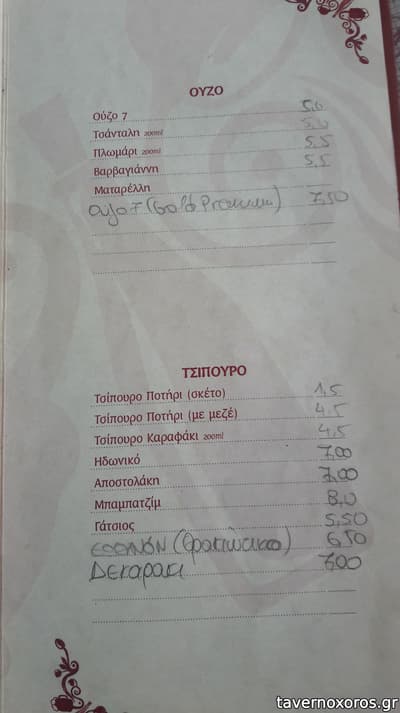 ΟΥΖΟ
Ούζο 7 5,0
Τσάνταλη 200ml 5,0
Πλωμάρι 200ml 5,5
Βαρβαγιάννη 5,5
Ματαρέλλη
Ουζο 7 (Gold Premium) 7,50
ΤΣΙΠΟΥΡΟ
Τσίπουρο Ποτήρι (σκέτο) 1,5
Τσίπουρο Ποτήρι (με μεζέ) 4,5
Τσίπουρο Καραφάκι 200ml 4,5
Ηδωνικό 7,00
Αποστολάκη 7,00
Μπαμπατζίμ 8,0
Γάτσιος 5,50
(Θρακιώτικο) 6,50
ΔΕΚΑΡΑΚΙ 7,00
tavernoxoros.gr